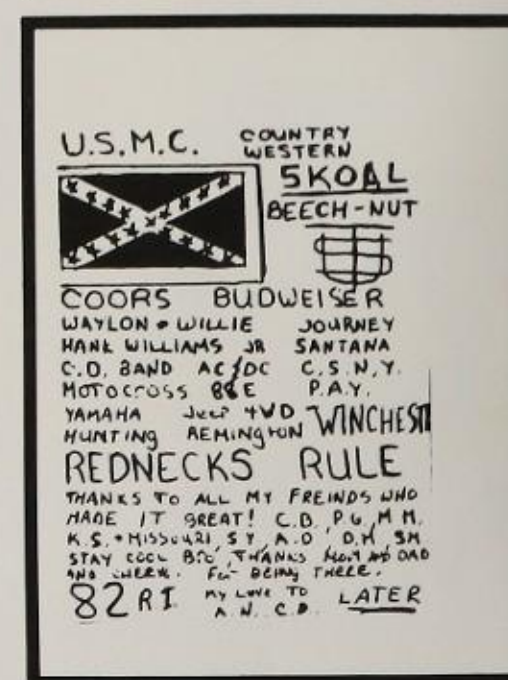 U.S.M.C.
COUNTRY
WESTERN
SKOAL
BEECH-NUT
COORS BUDWEISER
WAYLON • WILLIE JOURNEY
HANK WILLIAMS JR SANTANA
C.D. BAND AC/DC C.S.N.Y.
MOTOCROSS P.A.Y.
YAMAHA Jeep 4WD WINCHEST
HUNTING REMINGTON
REDNECKS RULE
THANKS TO ALL MY FREINDS WHO
MADE IT GREAT! C.B. P.G. M M.
K.S. • MISSOURI S Y. A.D. D.M SM
STAY COOL BRO, THANKS MOM AND DAD
AND FOR BEING THERE.
82 R I. MY LOVE TO
A. N. C. D. LATER